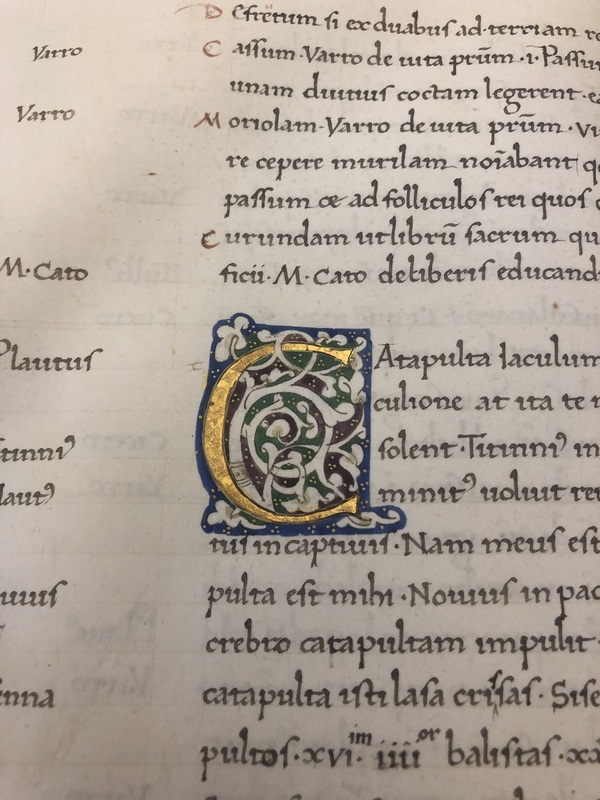 Efretum si ex duabus ad terriam re
Varro C assum·Varro de uita prūm·i·Passum
unam diutius coctam legerent·
Varro M oriolam·Varro de uita prūm·
re cepere murilam noīabant
passum ad folliculos rei quos
C urundam ut librū sacrum qu
M·Cato ficii·M·Cato de liberis educand
Plautus CAtapulta Iaculum
culione at ita te
solent·Titinni⁹ in
minit⁹ uoluit
tus in captiuis·Nam meus est
pulta est mihi·Nouius in
crebro catapultam impulit
catapulta isti lasa crisas·Sise
pultos·xvi·im iiii or balistas·